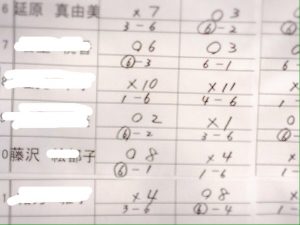 6 延原 真由美 ×7 03
3-6 ⑥-2
7 06 03
⑥-3 6-1
×10 ×11
1-6 4-6
02 ×1
⑥-2 3-6
0 藤沢 子 08 ×4
⑥-1 1-6
1 ×4 08
3-6 ⑥-4